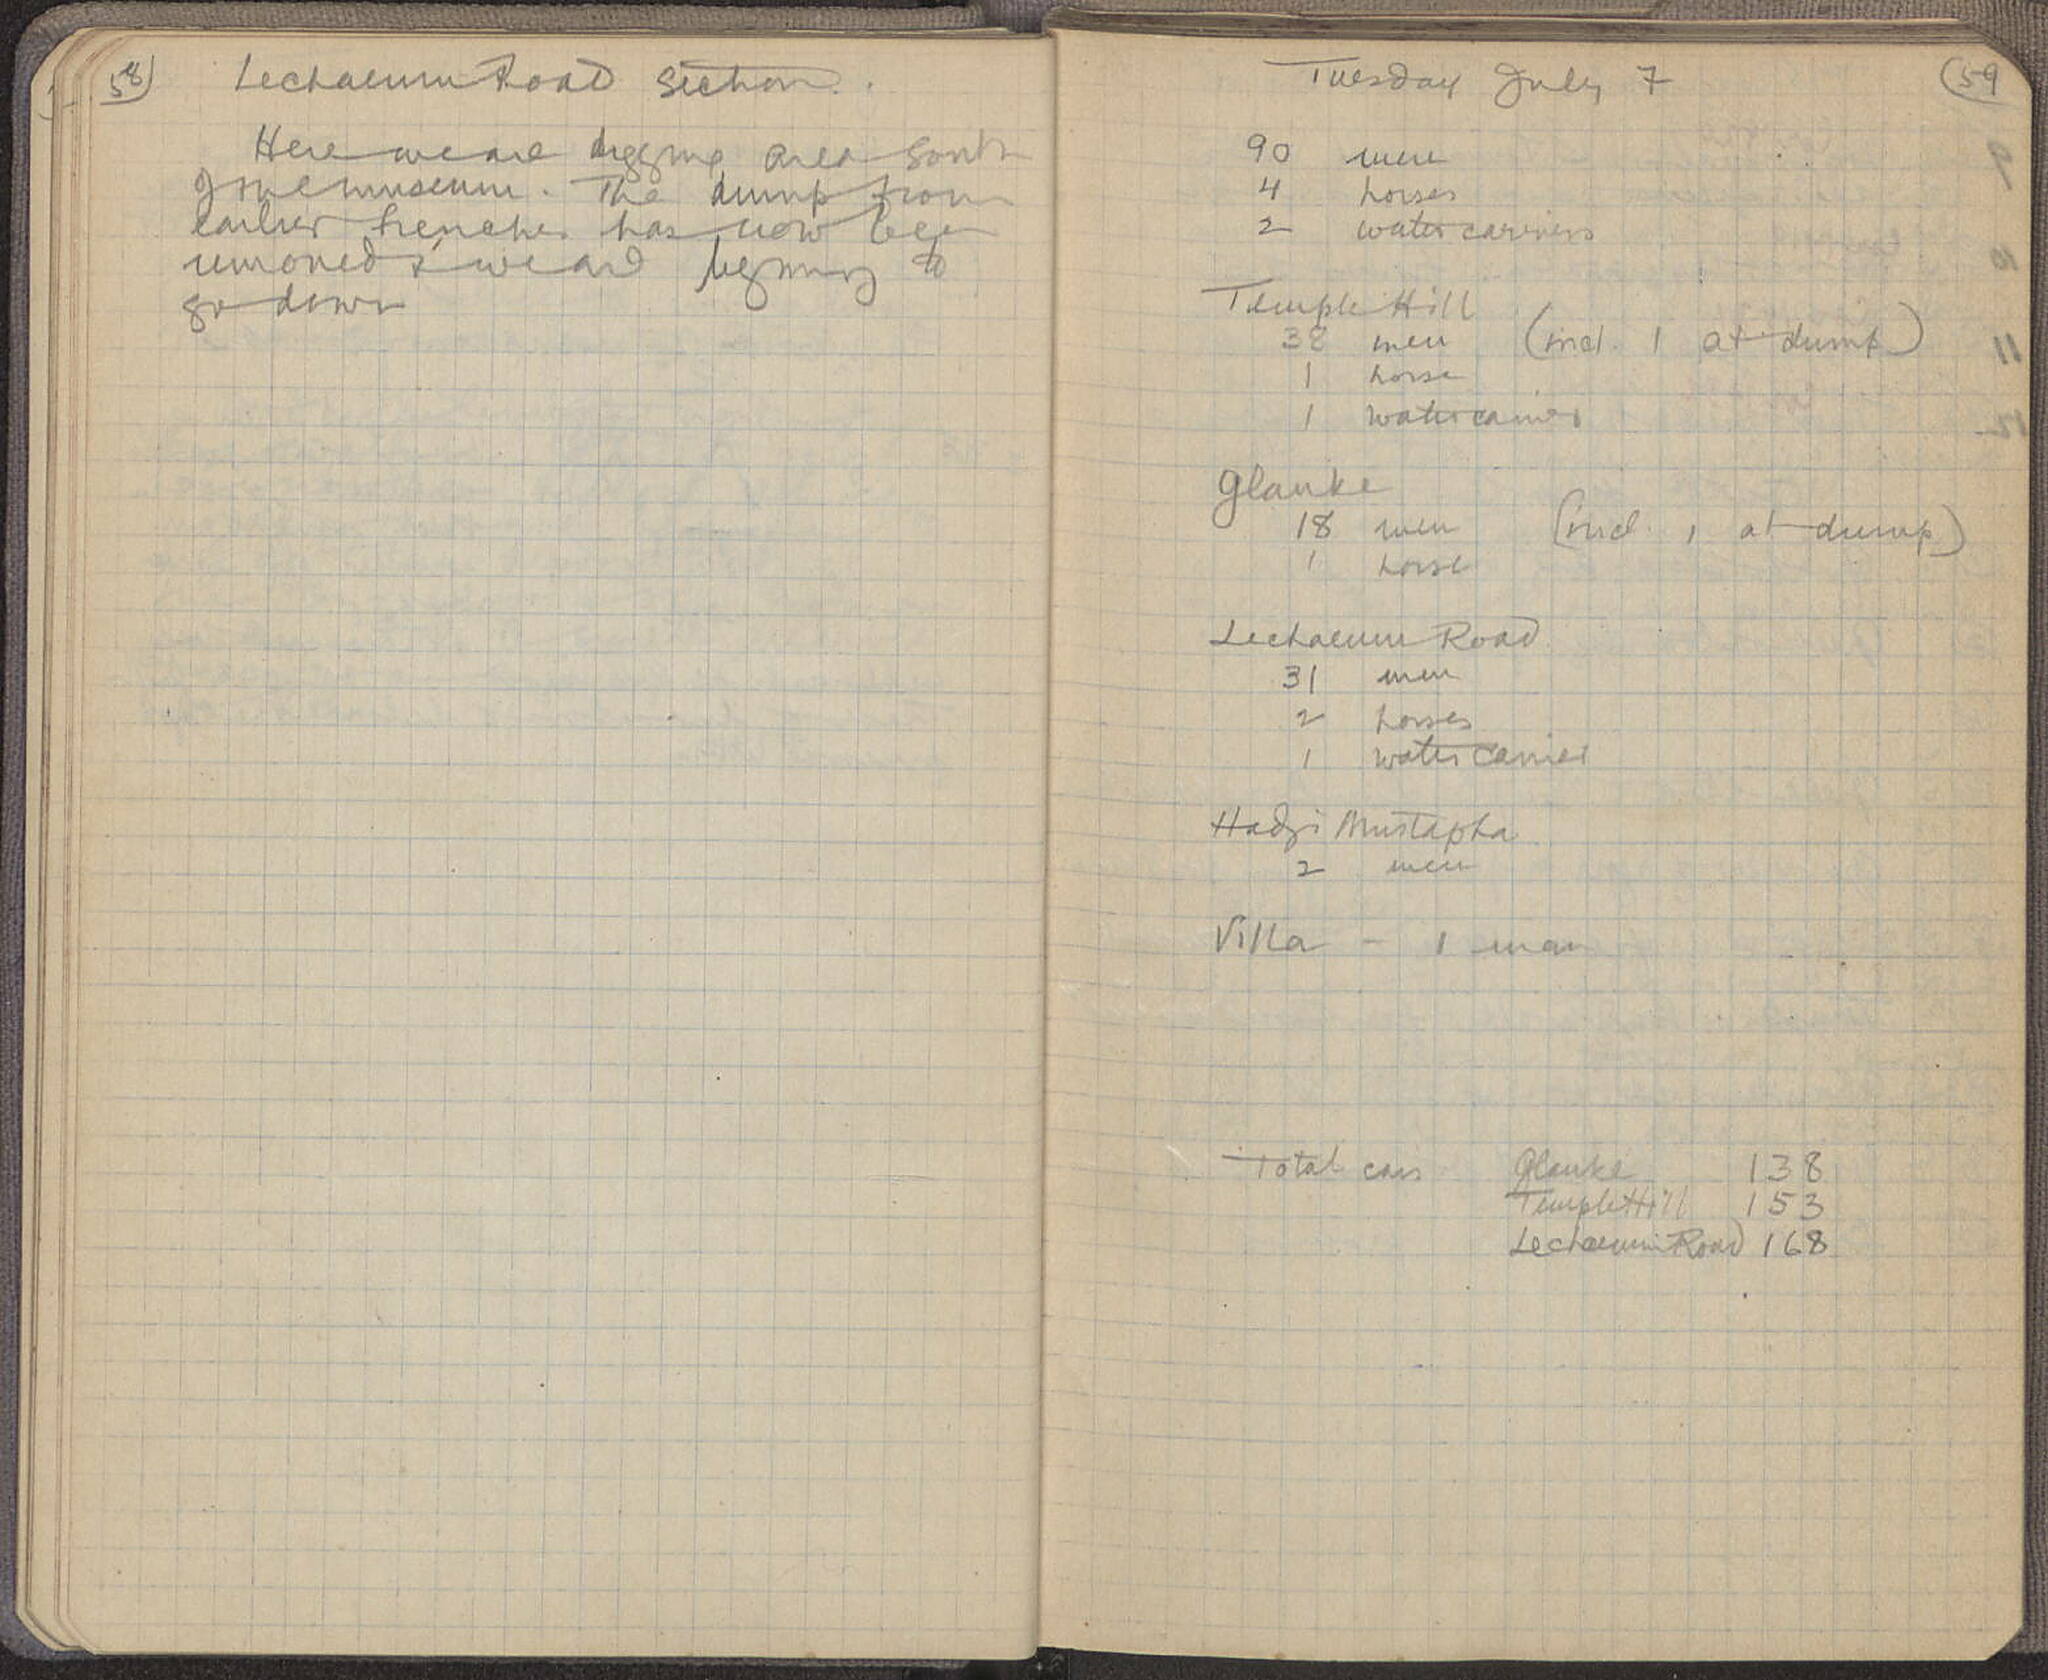 58
Lechaeum Road Section.
Here we are digging area south
of the museum. The dump from
earlier trenches has now been
removed & we are beginning to
go down
Tuesday July 7
59
90 men
4 horses
2 water carriers
Temple Hill
38 men (incl. 1 at dump)
1 horse
1 water carrier
Glauke
18 men (incl. 1 at dump)
1 horse
Lechaeum Road
31 men
2 horses
1 water carrier
Hadji Mustapha
2 men
Villa - 1 man
Total cars Glauke 138
Temple Hill 153
Lechaeum Road 168